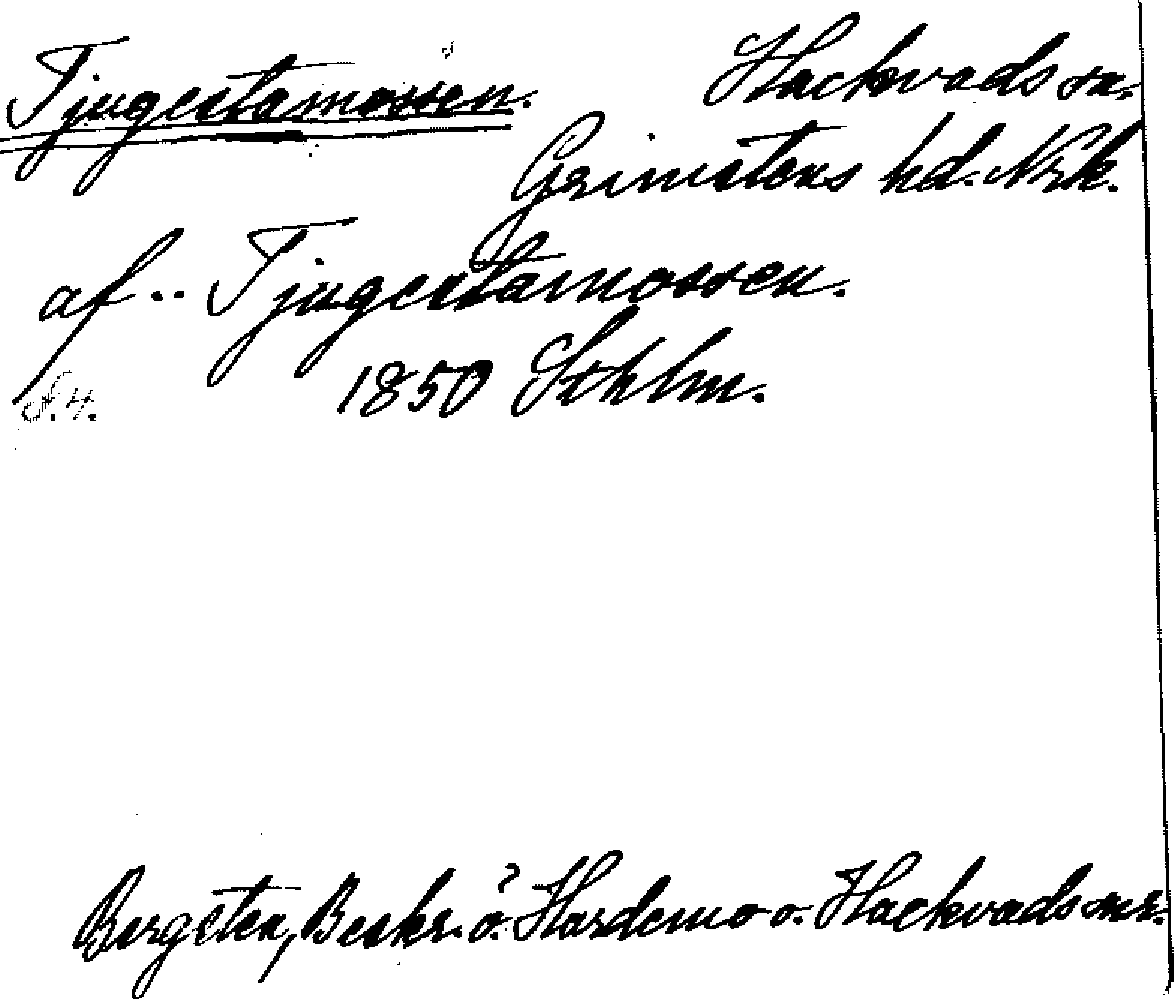 Tjugestamossen. Hackvads sn.
Grimstens hd. Nrk.
af .. Tjugestamossen.
1850 Sthlm.
S. 4.
Bergsten, Beskr. ö. Hardemo o. Hackvads snr.